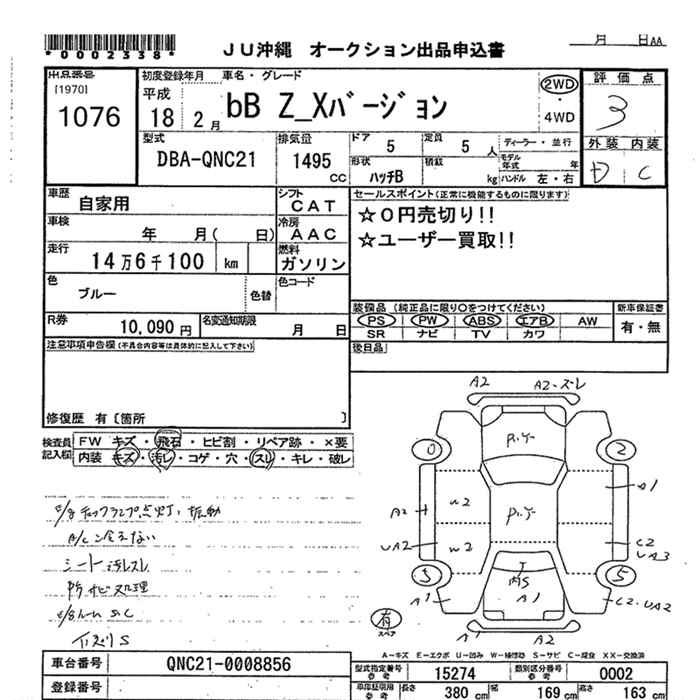 *0002338*
JU沖縄 オークション出品申込書
月 日AA
出品番号
[1970]
1076
初度登録年月
平成
18 2月
車名・グレード
bB Z_Xバージョン
2WD
・
4WD
評価点
3
外装 内装
D C
型式
DBA-QNC21
排気量
1495 CC
ドア 5
定員 5 人
形状 ハッチB
積載 kg
ディーラー・並行
モデル年式 年
ハンドル 左・右
車歴 自家用
シフト CAT
車検 年 月( 日)
冷房 AAC
走行 14万6千100 km
燃料 ガソリン
色 ブルー
色替
色コード
R券 10,090円
名変通知期限 月 日
セールスポイント(正常に機能するものに限ります)
☆0円売切り!!
☆ユーザー買取!!
装備品(純正品に限り○をつけてください)
PS PW ABS エアB AW
SR ナビ TV カワ
新車保証書
有・無
後日品
注意事項申告欄(不具合内容等は具体的に記入して下さい)
修復歴 有〔箇所 〕
検査員記入欄
FW キズ・飛石・ヒビ割・リペア跡・×要
内装 キズ・汚レ・コゲ・穴・スレ・キレ・破レ
E/gチェックランプ点灯、振動
A/C冷えない
シート汚レスレ
下サビ処理
A2
A2-ズレ
P.Y
0
2
A1
A2
W2
P.Y
UA2
W2
C2
UA3
5
5
A1
A1
C2.UA2
A1
A2
有
スペア
A-キズ E-エクボ U-凹み W-補修跡 S-サビ C-腐食 XX-交換済
車台番号 QNC21-0008856
登録番号
型式指定番号 参考 15274
類別区分番号 参考 0002
車庫証明用 参考
長さ 380 cm
幅 169 cm
高さ 163 cm